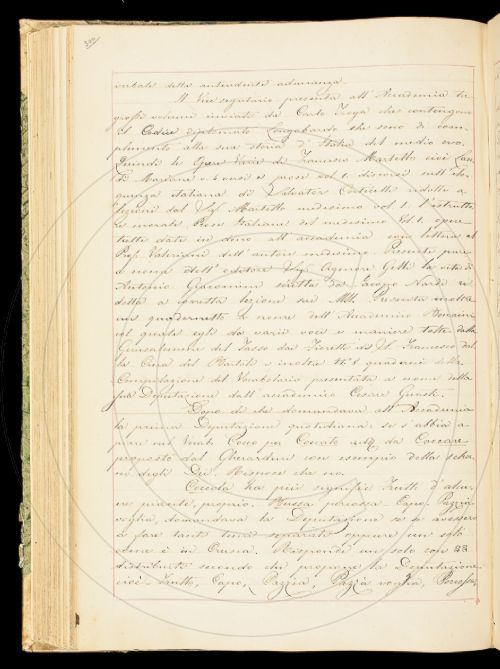 verbale della antecedente adunanza.
Il Vice segretario presenta all'Accademia tre
grossi volumi inviati da Carlo Troya che contengono
il Codice diplomatico Longobardo che sono di com-
plemento alla sua storia d'Italia del medio evo.
Quindi le Opere Varie di Francesco Martello cioè
Morgane v. 6 versi e prose vol 1. discorsi sull'elo-
quenza italiana di Salvator Corticelli ridotte a
lezioni dal Sig. Martello medesimo vol 1. l'istrutto
re morale Prose Italiane del medesimo Vol 1. opere
tutte date in dono all'accademia con lettera al
Prof. Valeriani dell'autore medesimo. Presenta pure
a nome dell'editore Sig. Agenore Gelli la vita di
Antonio Giacomini scritta da Jacopo Nardi ri
dotta a corretta lezione sui MSS. Presenta inoltre
un quadernetto a nome dell'Accademico Bencini
nel quale egli dà varie voci e maniere tratte dalla
Gerusalemme del Tasso dai Fioretti di S. Francesco dal
la Cena del Bartoli e inoltre quaderni della
Compilazione del Vocabolario presentati a nome della
sua Deputazione dall'accademico Cesare Guasti.
Dopo di che domandava all'Accademia
la prima Deputazione quotidiana se s'abbia a
porre nel Vocab. Cocco per Coccato da Coccare
proposto dal Gherardini con esempio della
degli Dei. Rispose che no.
Coccola ha più significati Frutti d'albe
ro piccole, proprio. Bussa percossa. Capo. Pazzia
voglia, domandava la Deputazione se si avessero
a fare tanti temi separati oppure un solo
come è in Crusca. Rispondi un solo con §§
distribuite secondo che propone la Deputazione
cioè Frutto, Capo, Pazzia, Pazza voglia, Percossa